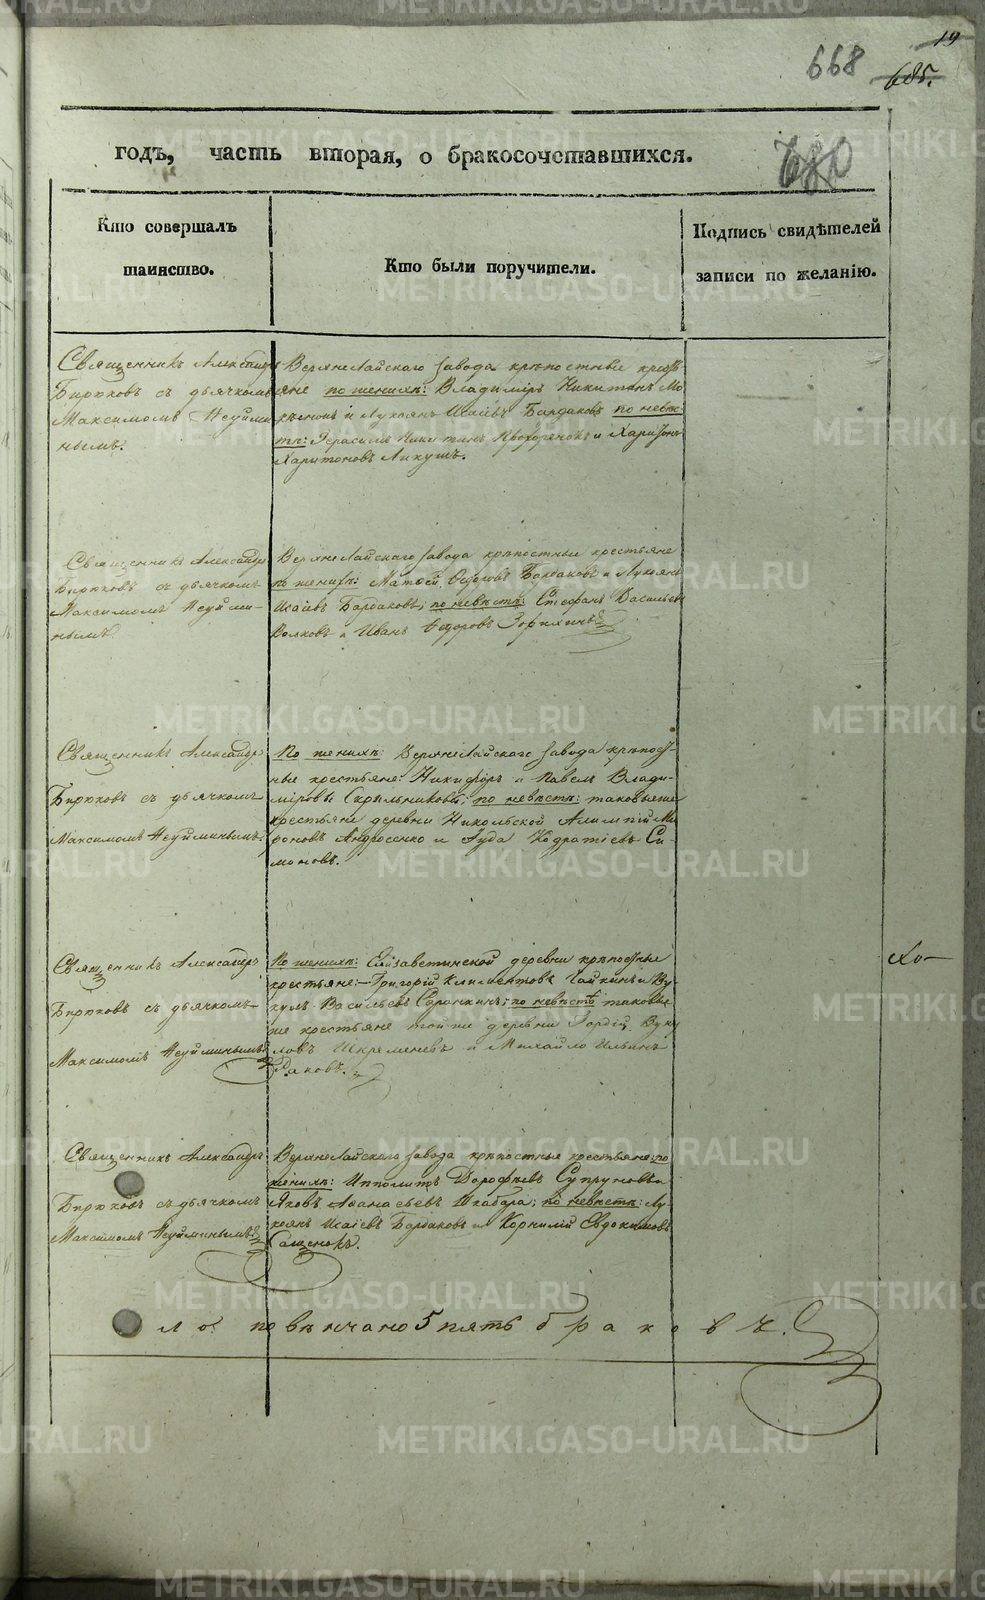 19
668 685.
680
годъ, часть вторая, о бракосочетавшихся.
Кто совершалъ
таинство.
Кто были поручители.
Подпись свидѣтелей
записи по желанію.
Священникъ Александръ
Бирюковъ съ дьячкомъ
Максимомъ Неуймин
нымъ.
ВерхнеЛайскаго завода крѣпостные кресть
яне по женихѣ: Владиміръ Никитинъ
и Лукоянъ Исаіевъ Бардаковъ по невѣс
тѣ: Герасимъ Никитинъ Прохоренокъ и Харитонъ
Харитоновъ Ликушъ.
Священникъ Александръ
Бирюковъ съ дьячкомъ
Максимомъ Неуйми-
нымъ.
ВерхнеЛайскаго завода крѣпостные крестьяне
по женихѣ: Матѳей Ѳедоровъ Бардаковъ и Лукоянъ
Исаіевъ Бардаковъ; по невѣстѣ: Стефанъ Васильевъ
Волковъ и Иванъ Ѳедоровъ Зорихинъ
Священникъ Александръ
Бирюковъ съ дьячкомъ
Максимомъ Неуйминымъ.
По женихѣ: ВерхнеЛайскаго завода крѣпост
ные крестьяне: Никифоръ и Павелъ Влади-
міровы Скрыльниковы; по невѣстѣ: таковыеже
крестьяне деревни Никольской Алимпій Ми
роновъ Андросенко и Іуда Кодратіевъ Си-
моновъ.
Священникъ Александръ
Бирюковъ съ дьячкомъ
Максимомъ Неуйминымъ
По женихѣ: Елисаветинской деревни крѣпостные
крестьяне: Григорій Климентовъ Чайкинъ и Ву-
кулъ Васильевъ Саранкинъ; по невѣстѣ таковые
же крестьяне тойже деревни Гордій Вуку
ловъ Шкременевъ и Михайло Ильинъ
Раковъ.
Хо-
Священникъ Александръ
Бирюковъ съ дьячкомъ
Максимомъ Неуйминымъ
ВерхнеЛайскаго завода крѣпостные крестьяне по
женихѣ: Ипполитъ Дорофѣевъ Супруновъ и
Яковъ Аѳанасьевъ Шкабара; по невѣстѣ: Лу
коянъ Исаіевъ Бардаковъ и Корнилій Евдокимовъ
Сащенокъ.
ло повѣнчано 5 пять браковъ.
METRIKI.GASO-URAL.RU